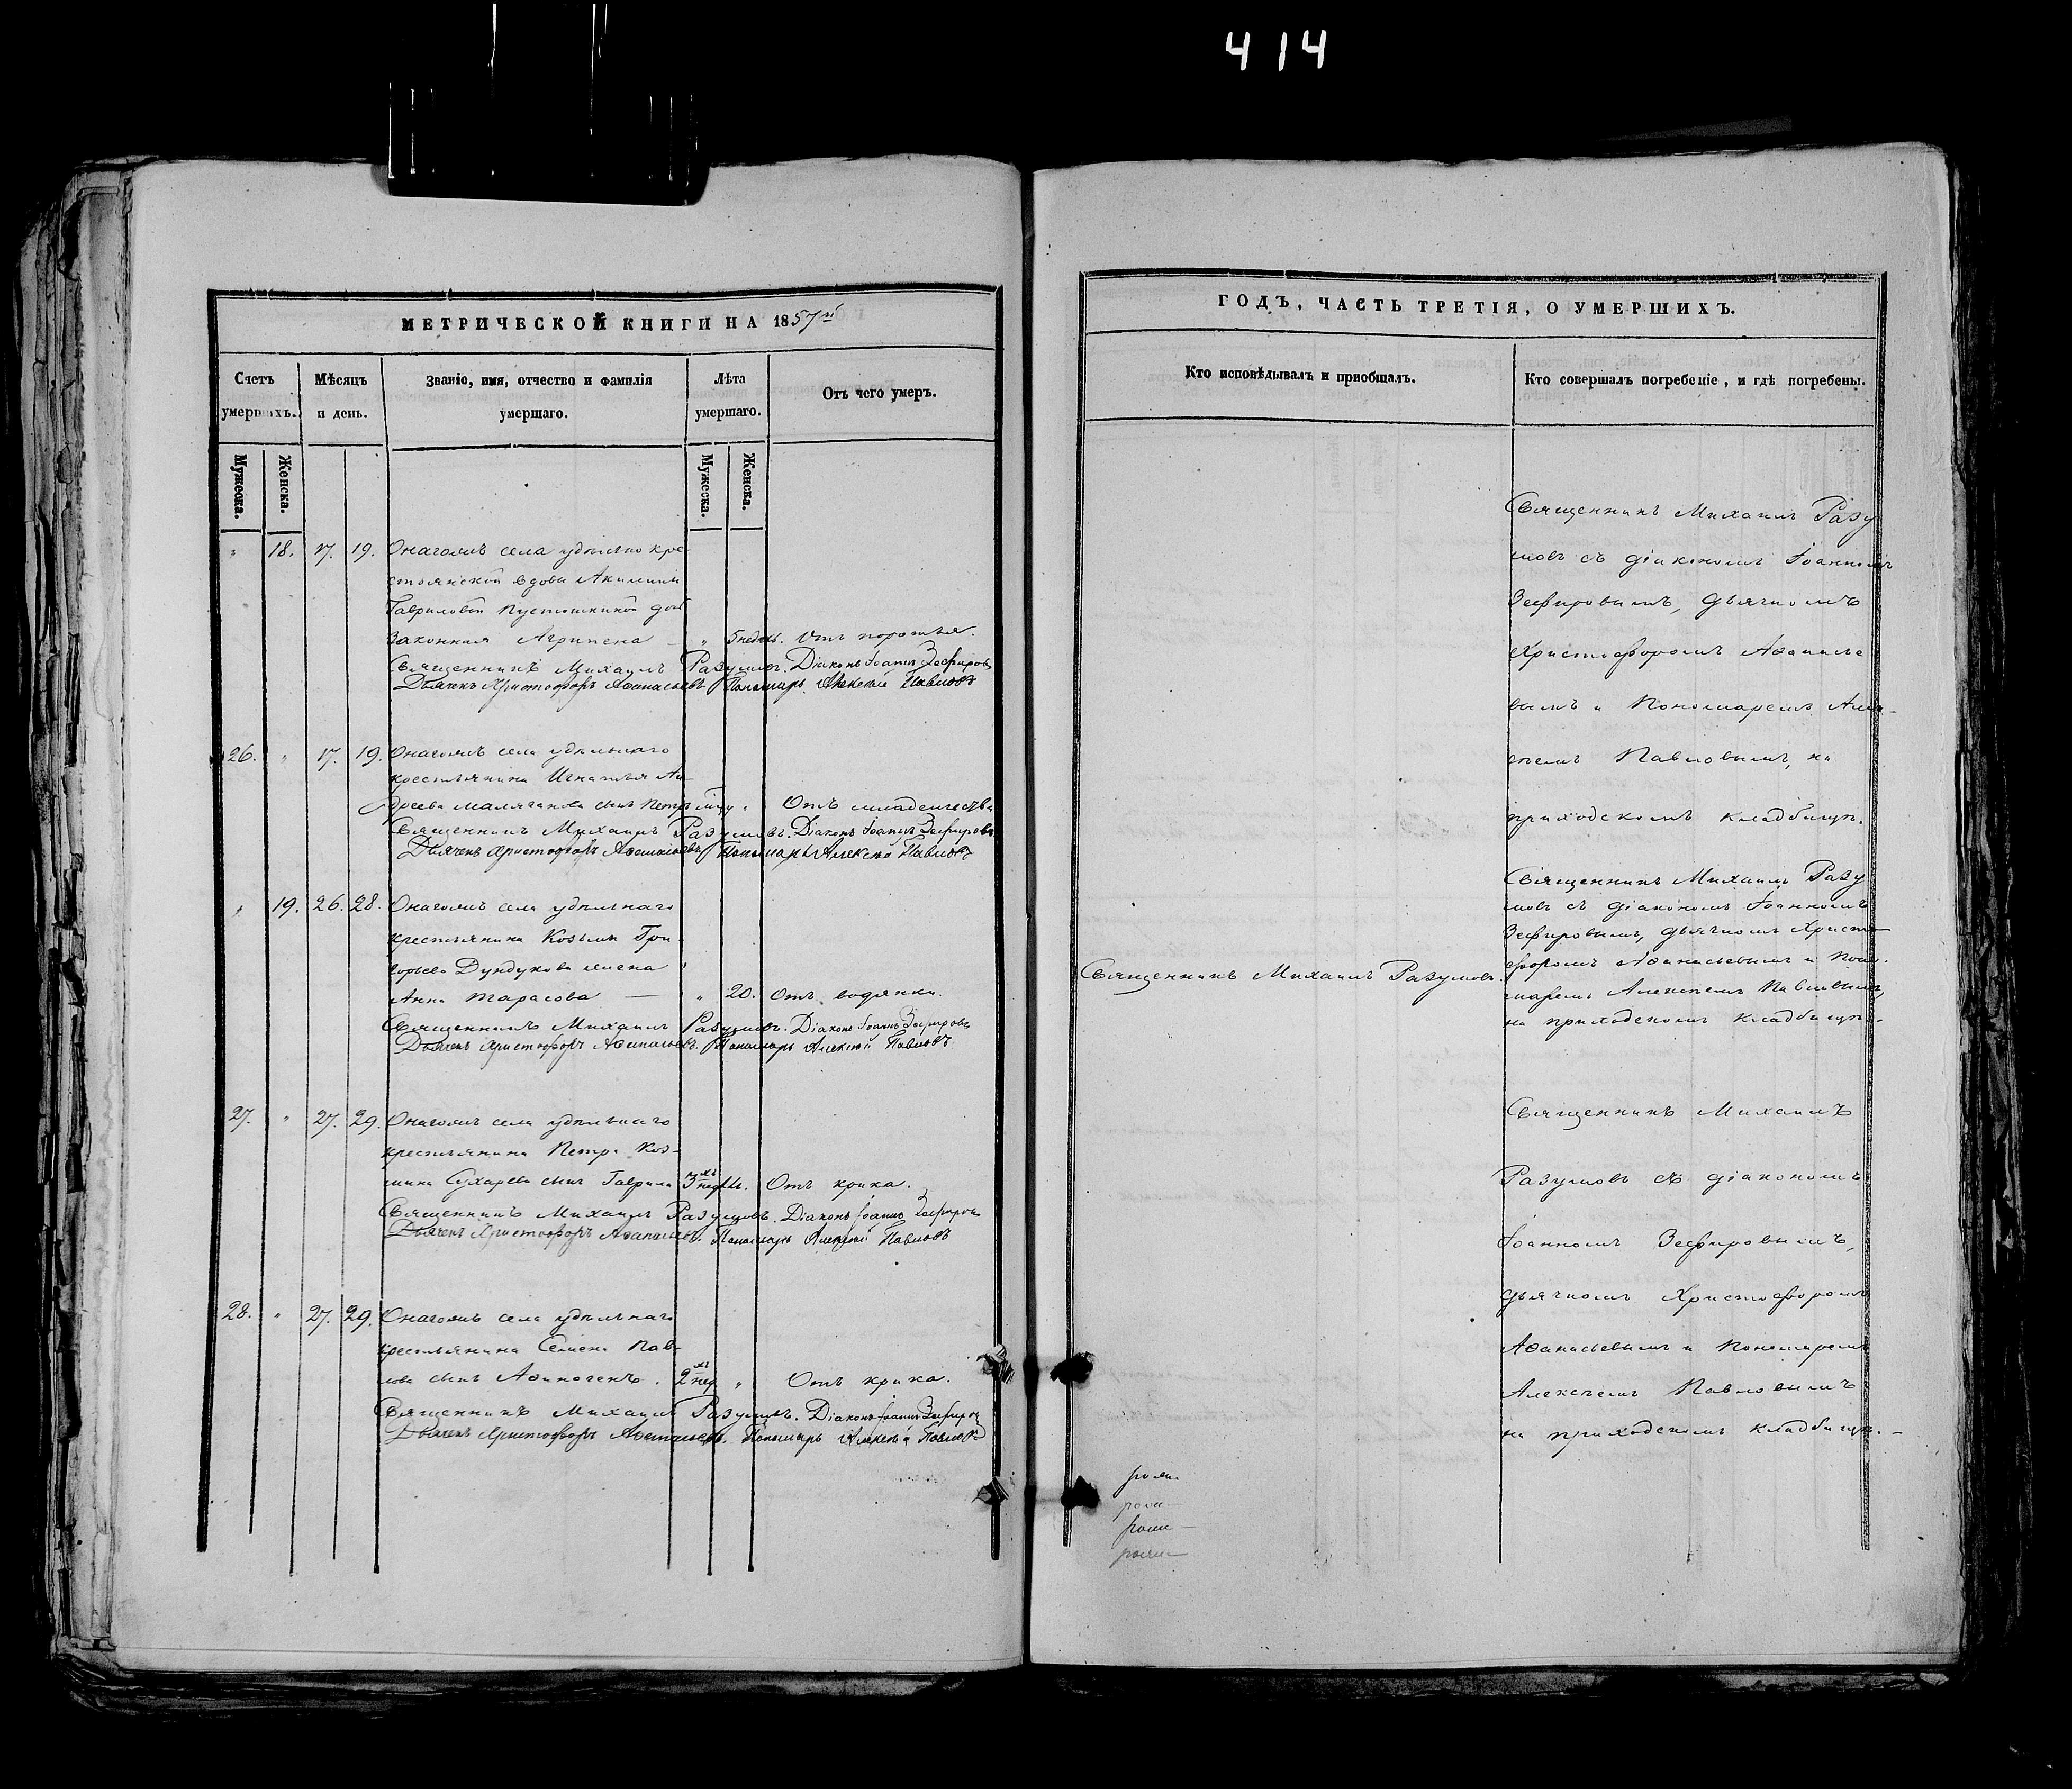 414
МЕТРИЧЕСКОЙ КНИГИ НА 1857й
Счетъ умершихъ.
Мѣсяцъ и день.
Званіе, имя, отчество и фамилія умершаго.
Лѣта умершаго.
Отъ чего умеръ.
Мужеска.
Женска.
Мужеска.
Женска.
" 18. 17. 19. Онагожъ села удѣльно кре-
стьянской вдовы Акилины
Гавриловой Пустошкиной дочь
законная Агрипена — " 5 недѣль. Отъ
Священникъ Михаилъ Разумовъ. Діаконъ Іоаннъ Зефировъ
Дьячекъ Христофоръ Аѳанасьевъ Пономарь Алексѣй Павловъ
26. " 17. 19. Онагожъ села удѣльнаго
крестьянина Игнатья Ан-
дреева сынъ Петръ " Отъ младенчества
Священникъ Михаилъ Разумовъ. Діаконъ Іоаннъ Зефировъ
Дьячекъ Христофоръ Аѳанасьевъ Пономарь Алексѣй Павловъ
" 19. 26. 28. Онагожъ села удѣльнаго
крестьянина Козьмы Гри-
горьева Дундукова жена
Анна Тарасова — " 20. Отъ водянки.
Священникъ Михаилъ Разумовъ. Діаконъ Іоаннъ Зефировъ
Дьячекъ Христофоръ Аѳанасьевъ. Пономарь Алексѣй Павловъ
27. " 27. 29. Онагожъ села удѣльнаго
крестьянина Петра Коз-
мина Сухарева сынъ Гаврила 3хъ недѣль. Отъ крика.
Священникъ Михаилъ Разумовъ. Діаконъ Іоаннъ Зефировъ
Дьячекъ Христофоръ Аѳанасьевъ. Пономарь Алексѣй Павловъ
28. " 27. 29. Онагожъ села удѣльнаго
крестьянина Семена Пав-
лова сынъ Аѳиногенъ. 2хъ нед. " Отъ крика.
Священникъ Михаилъ Разумовъ. Діаконъ Іоаннъ Зефировъ
Дьячекъ Христофоръ Аѳанасьевъ. Пономарь Алексѣй Павловъ
ГОДЪ, ЧАСТЬ ТРЕТІЯ, О УМЕРШИХЪ.
Кто исповѣдывалъ и пріобщалъ.
Кто совершалъ погребеніе, и гдѣ погребены.
Священникъ Михаилъ Разу
мовъ съ діакономъ Іоанномъ
Зефировымъ, дьячкомъ
Христофоромъ Аѳанасье
вымъ и Пономаремъ Алек-
сѣемъ Павловымъ, на
приходскомъ кладбищѣ.
Священникъ Михаилъ Разу
мовъ съ діакономъ Іоанномъ
Зефировымъ, дьячкомъ Христо-
Священникъ Михаилъ Разумовъ. форомъ Аѳанасьевымъ и Поно-
маремъ Алексѣемъ Павловымъ,
на приходскомъ кладбищѣ.
Священникъ Михаилъ
Разумовъ съ діакономъ
Іоанномъ Зефировымъ,
дьячкомъ Христофоромъ
Аѳанасьевымъ и Пономаремъ
Алексѣемъ Павловымъ
на приходскомъ кладбищѣ. —